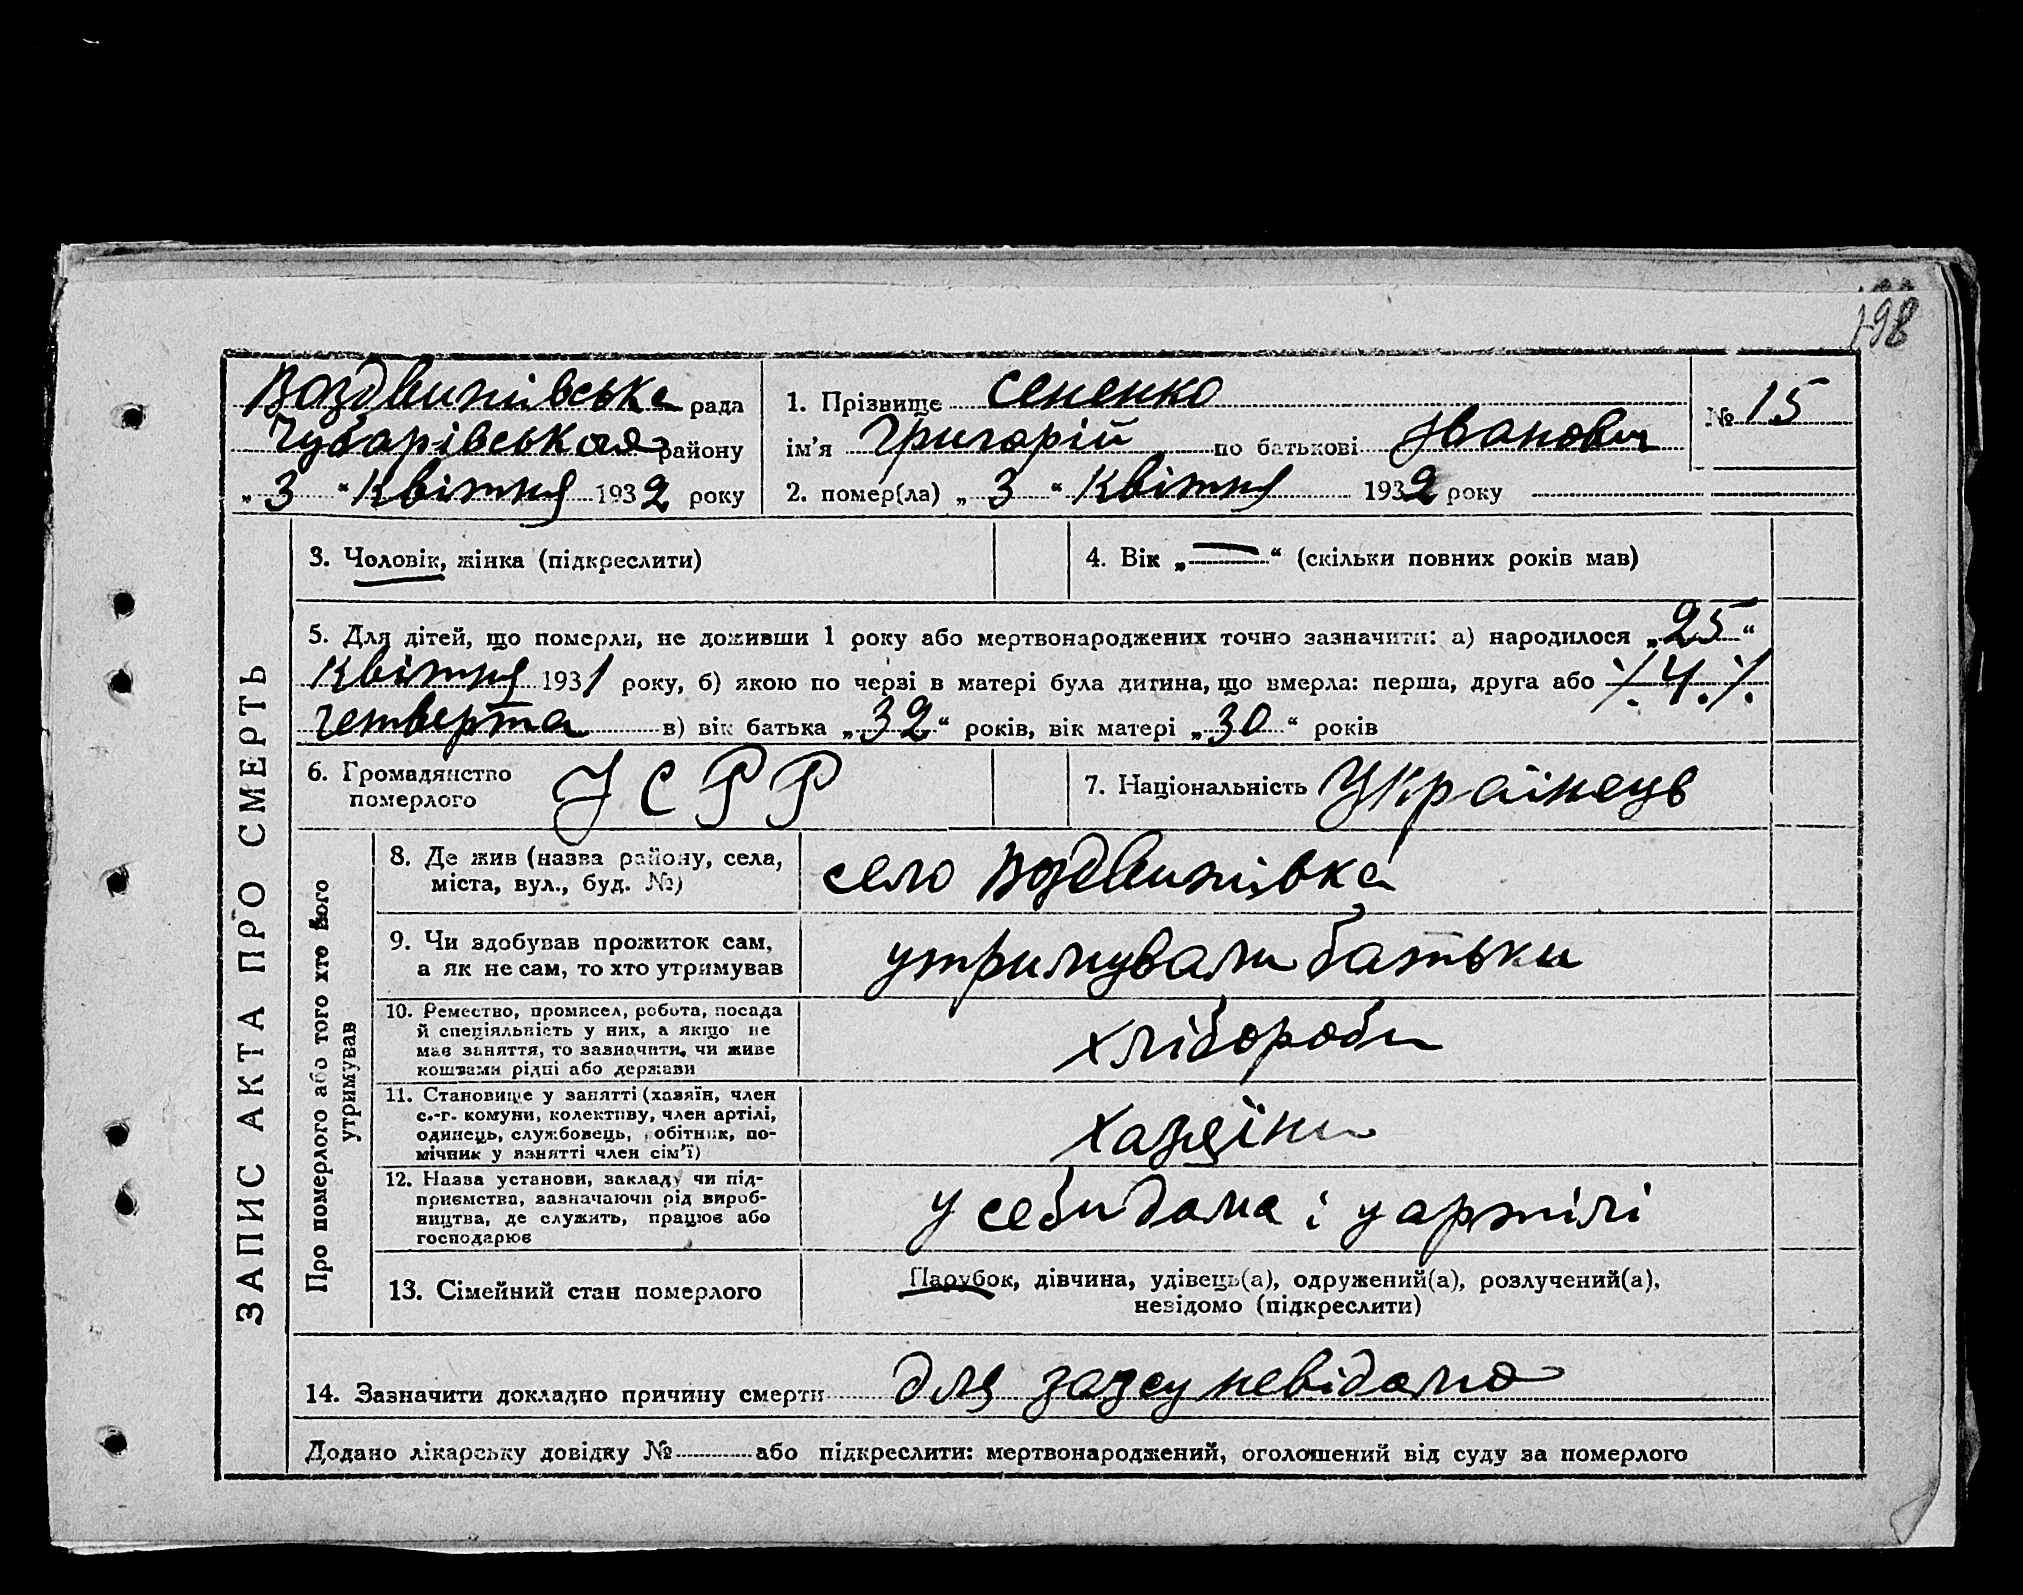 198
Воздвижівська рада
Чубарівського району
„ 3 “ Квітня 1932 року
1. Прізвище Сененко
ім’я Григорій по батькові Іванович
2. помер(ла) „ 3 “ Квітня 1932 року
№ 15
ЗАПИС АКТА ПРО СМЕРТЬ
3. Чоловік, жінка (підкреслити)
4. Вік „ — “ (скільки повних років мав)
5. Для дітей, що померли, не доживши 1 року або мертвонароджених точно зазначити: а) народилося „ 25 “
Квітня 1931 року, б) якою по черзі в матері була дитина, що вмерла: перша, друга або /.4./.
четверта в) вік батька „ 32 “ років, вік матері „ 30 “ років
6. Громадянство
померлого
УСРР
7. Національність Українець
Про померлого або того хто його
утримував
8. Де жив (назва району, села,
міста, вул., буд. №)
село Воздвижівка
9. Чи здобував прожиток сам,
а як не сам, то хто утримував
утримували батьки
10. Ремество, промисел, робота, посада
й спеціяльність у них, а якщо не
мав заняття, то зазначити, чи живе
коштами рідні або держави
хлібороби
11. Становище у занятті (хазяїн, член
с.-г. комуни, колективу, член артілі,
одинець, службовець, робітник, по-
мічник у занятті член сім’ї)
хазяїни
12. Назва установи, закладу чи під-
приємства, зазначаючи рід вироб-
ництва, де служить, працює або
господарює
у себи дома і у артілі
13. Сімейний стан померлого
Парубок, дівчина, удівець(а), одружений(а), розлучений(а),
невідомо (підкреслити)
14. Зазначити докладно причину смерти для загсу невідомо
Додано лікарську довідку № або підкреслити: мертвонароджений, оголошений від суду за померлого